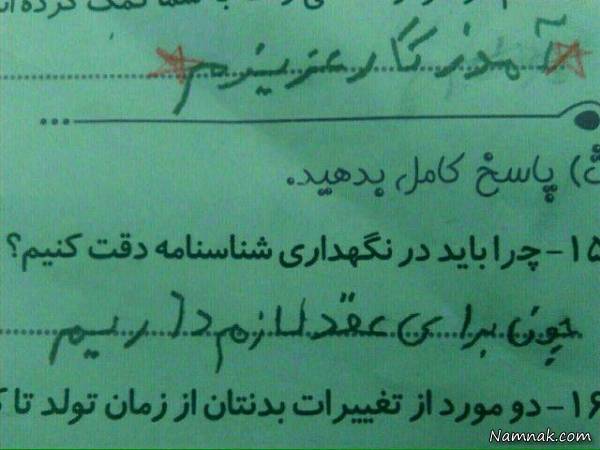 شما کمک کرده
آموزگار عزیزم
پاسخ کامل بدهید.
۱۵- چرا باید در نگهداری شناسنامه دقت کنیم؟
چون برای عقد لازم داریم
۱۶- دو مورد از تغییرات بدنتان از زمان تولد تا
Namnak.com